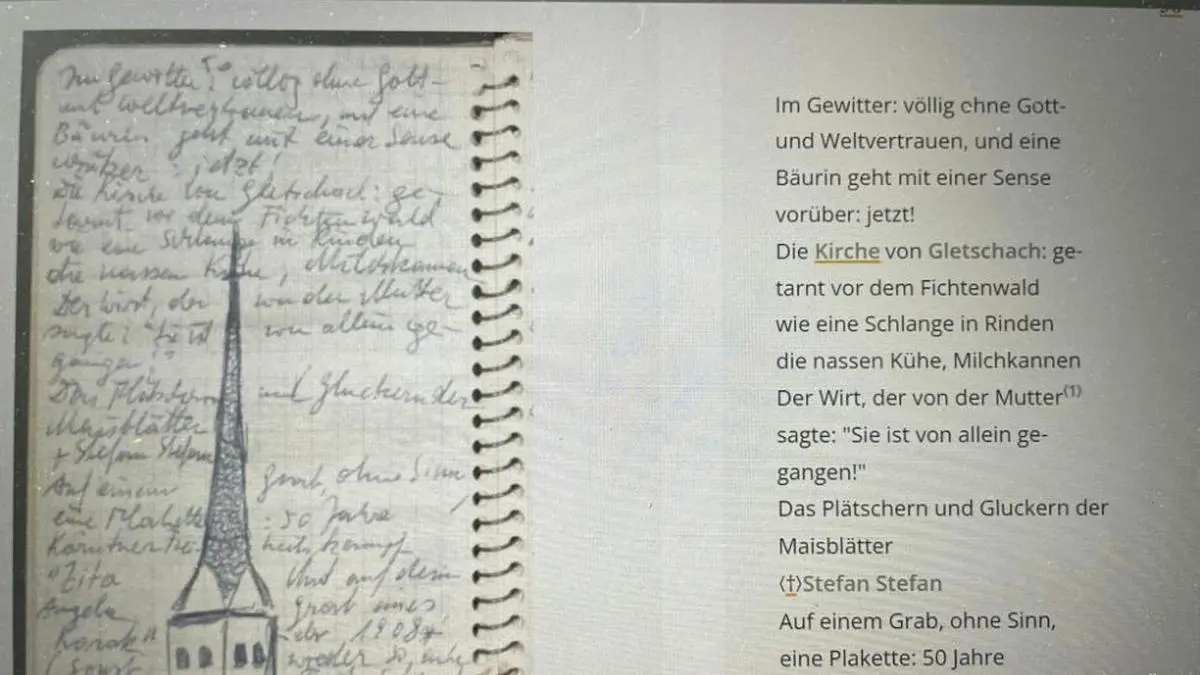 Im Gewitter: völlig ohne Gott-
und Weltvertrauen, und eine
Bäurin geht mit einer Sense
vorüber: jetzt!
Die Kirche von Gletschach: ge-
tarnt vor dem Fichtenwald
wie eine Schlange in Rinden
die nassen Kühe, Milchkannen
Der Wirt, der von der Mutter
sagte: "Sie ist von allein ge-
gangen!"
Das Plätschern und Gluckern der
Maisblätter
+ Stefan Stefan
Auf einem Grab, ohne Sinn,
eine Plakette: 50 Jahre
Kärntner Freiheitskampf
"Zita
Angela
Und auf dem
Grab eines
der 1908*
wieder so,
(Sonst
Im Gewitter: völlig ohne Gott-
und Weltvertrauen, und eine
Bäurin geht mit einer Sense
vorüber: jetzt!
Die Kirche von Gletschach: ge-
tarnt vor dem Fichtenwald
wie eine Schlange in Rinden
die nassen Kühe, Milchkannen
Der Wirt, der von der Mutter(1)
sagte: "Sie ist von allein ge-
gangen!"
Das Plätschern und Gluckern der
Maisblätter
⟨†⟩Stefan Stefan
Auf einem Grab, ohne Sinn,
eine Plakette: 50 Jahre